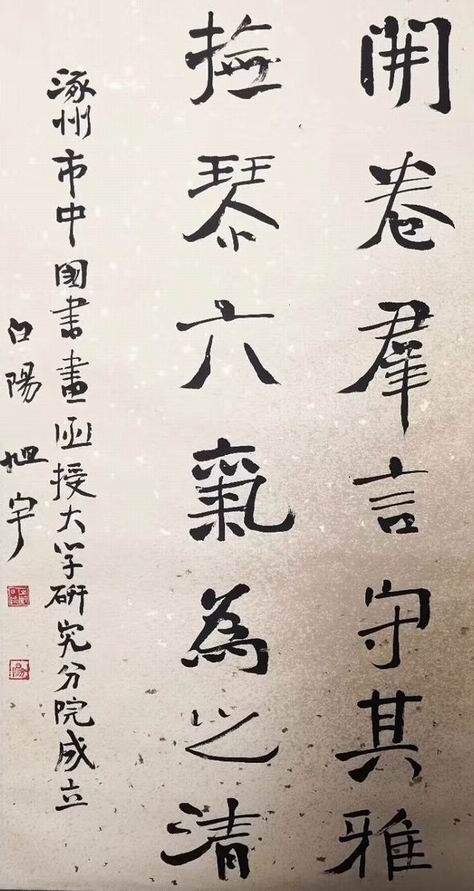 開卷羣言守其雅
撫琴六氣為之清
涿州市中國書畫函授大学研究分院成立
白陽 旭宇